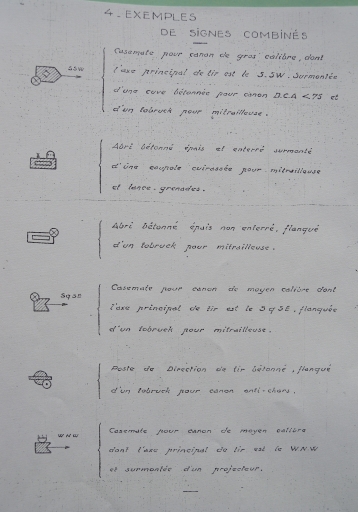 4 - EXEMPLES
DE SIGNES COMBINÉS
SSW
Casemate pour canon de gros calibre, dont
l'axe principal de tir est le S.SW. Surmontée
d'une cuve bétonnée pour canon D.C.A <75 et
d'un tobruck pour mitrailleuse.
Abri bétonné épais et enterré surmonté
d'une coupole cuirassée pour mitrailleuse
et lance-grenades.
Abri bétonné épais non enterré, flanqué
d'un tobruck pour mitrailleuse.
SqSE
Casemate pour canon de moyen calibre dont
l'axe principal de tir est le SqSE, flanquée
d'un tobruck pour mitrailleuse.
Poste de Direction de tir bétonné, flanqué
d'un tobruck pour canon anti-chars.
WNW
Casemate pour canon de moyen calibre
dont l'axe principal de tir est le W.N.W
et surmontée d'un projecteur.